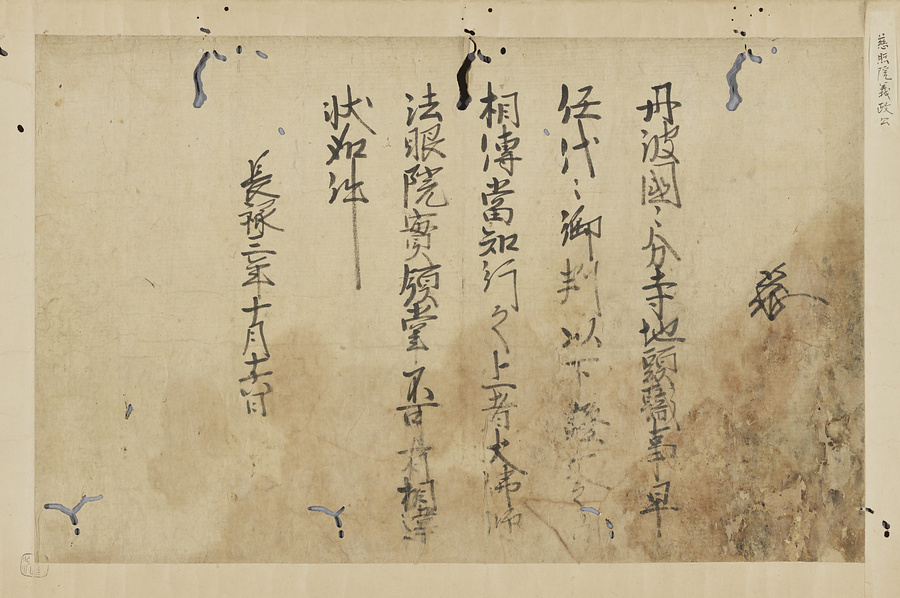 慈照院義政公
丹波國〻分寺地頭職事早
任代〻御判以下證文之
相傳當知行之上者大佛師
法眼院實領掌不可有相違
状如件
長祿二年十月十六日